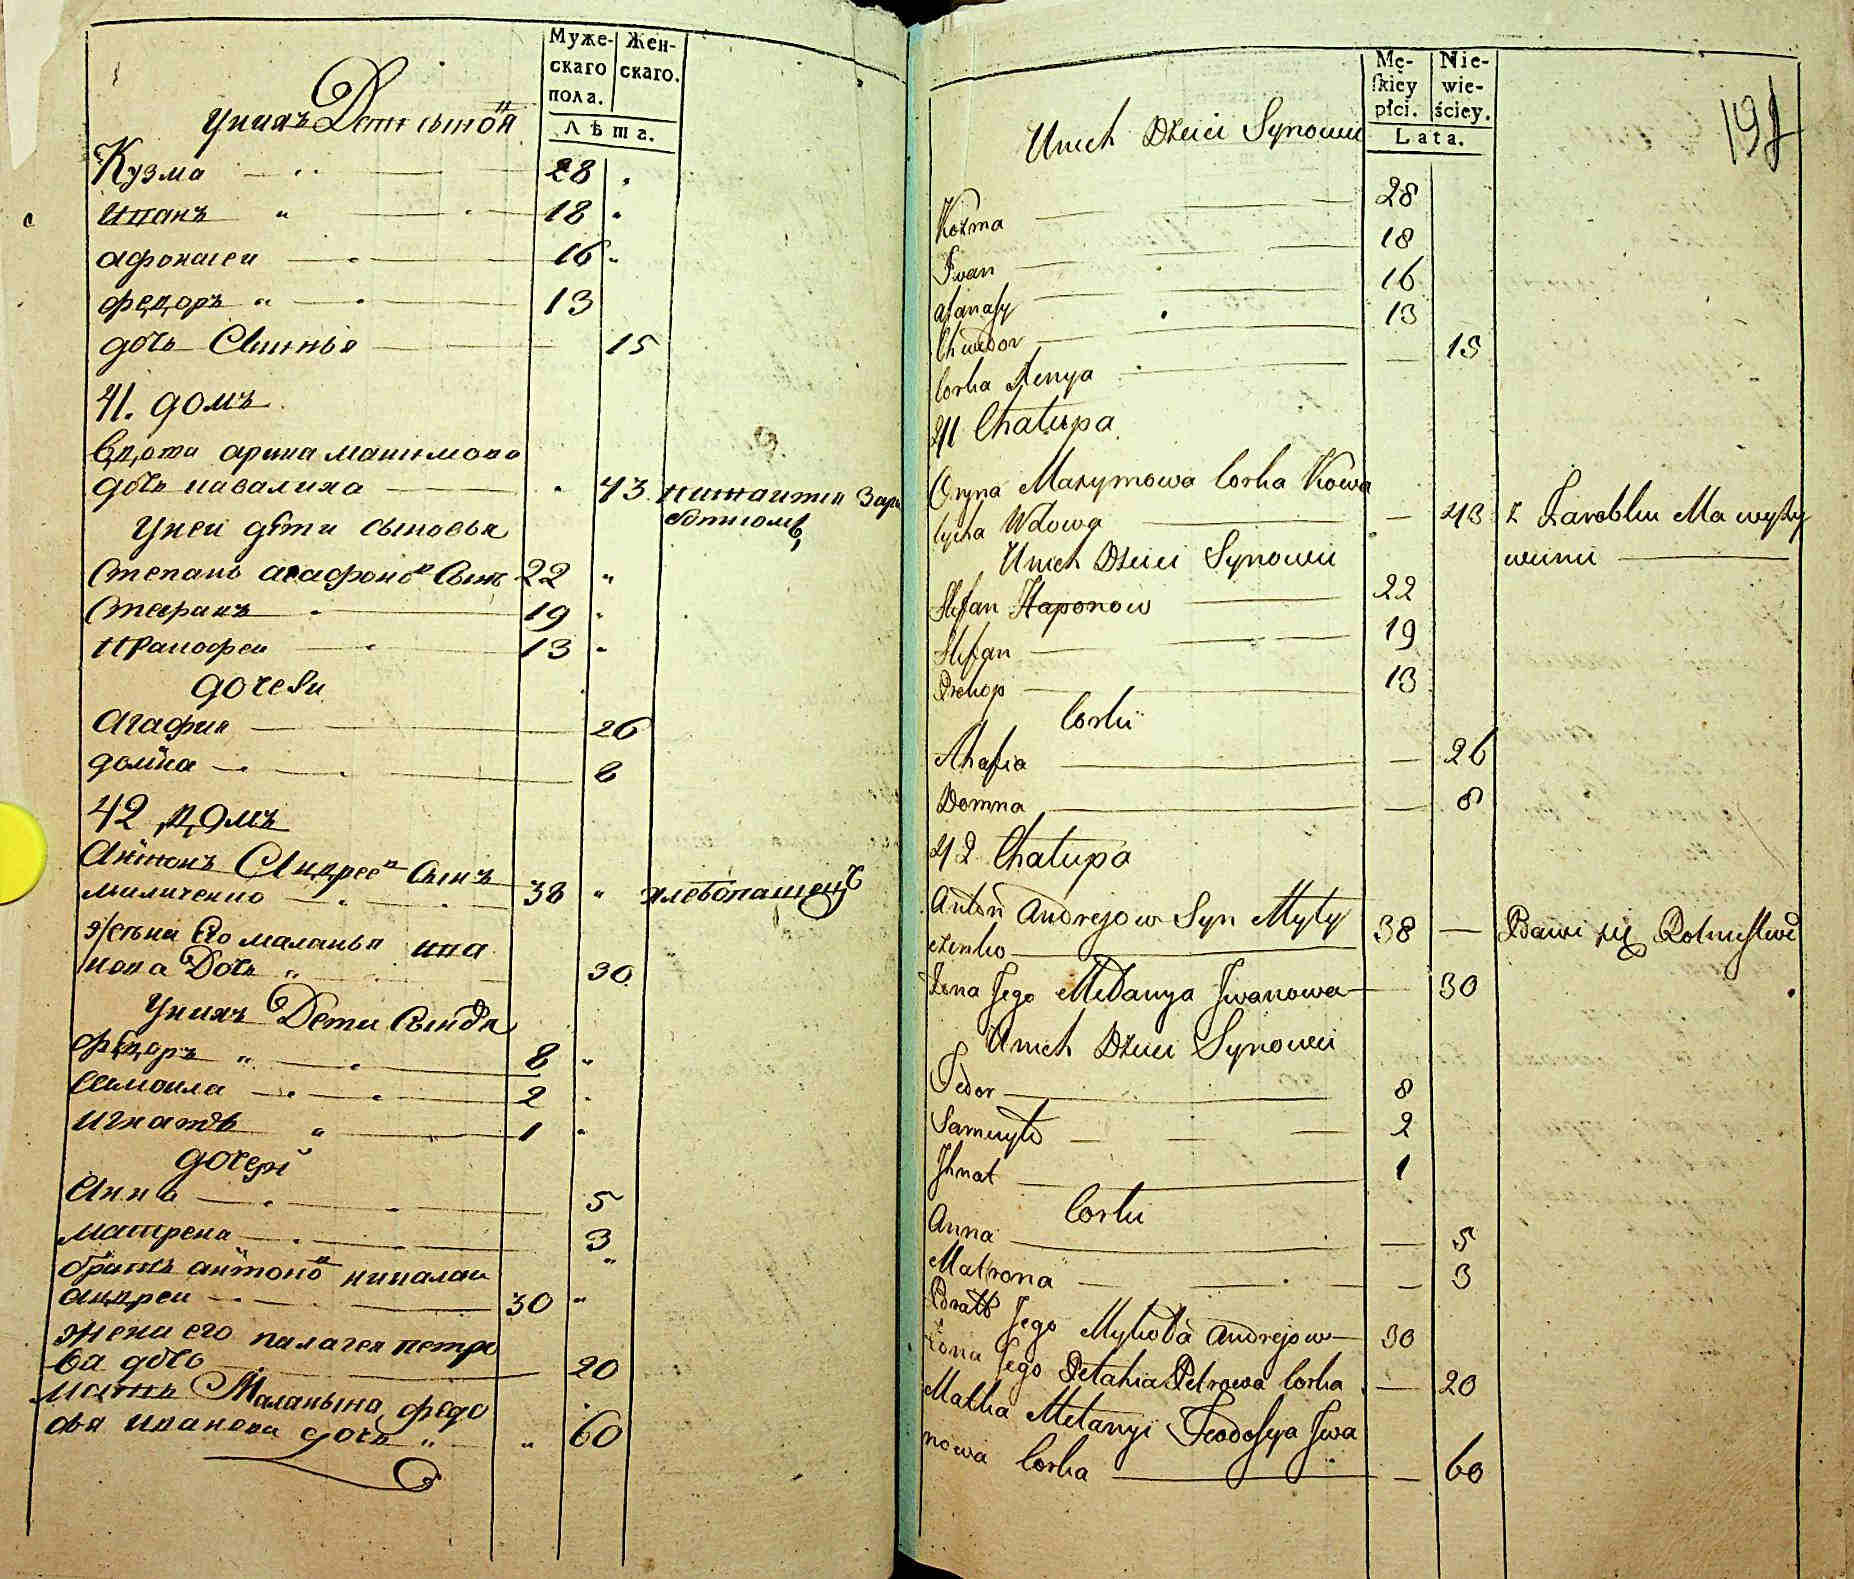 Муже-
скаго
пола.
Жен-
скаго.
Лѣта.
Унихъ Дети сыновя
Кузма 28
Иванъ 18
афонасеи 16
федоръ 13
дочь 15
41. домъ
вдова арина мацимова
дочь ковалиха 43 питаитца зара
боткомъ
Унеи дѣти сыновья
Степанъ агафоновъ Сынъ 22
Стефанъ 19
Прокофеи 13
дочеви
Агафия 26
домна 8
42 домъ
Антонъ Андреевъ Сынъ
миличенко 38 хлебопашецъ
жена Его маланья ива
нова Дочь 30
Унихъ Дети Сыновя
федоръ 8
Самоила 2
Игнатъ 1
дочери
Анна 5
матрена 3
братъ антоновъ николаи
андреи 30
жена его палагея петро
ва дочь 20
мать Маланьина федо
сья иванова дочь 60
Mę-
skiey
płci.
Nie-
wie-
ściey.
Lata.
198
Unich Dzieci Synowie
Kozma 28
Iwan 18
Afanasy 16
Chwedor 13
Corka Xenya 15
41 Chałupa
Oryna Maxymowa Corka Kowa
lycha Wdowa 43 z Zarobku Ma wyży
wienie
Unich Dzieci Synowie
Stefan Haponow 22
Stefan 19
Prokop 13
Corki
Ahafia 26
Domna 8
42 Chałupa
Anton Andrejow Syn Myły
czenko 38 Bawi się Rolnictwe
Zona Jego Mełanya Jwanowa 30
Unich Dzieci Synowie
Fedor 8
Samuyło 2
Jhnat 1
Corki
Anna 5
Matrona 3
Bratt Jego Mykoła Andrejow 30
Zona Jego Pełahia Petrowa Corka 20
Matka Mełanyi Feodosya Jwa
nowa Corka 60